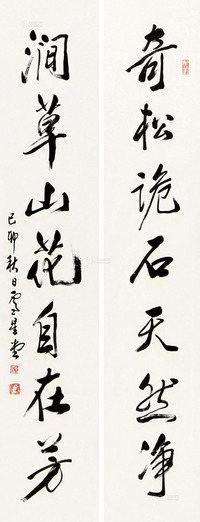 奇松诡石天然净
涧草山花自在芳
己卯秋日云星堂